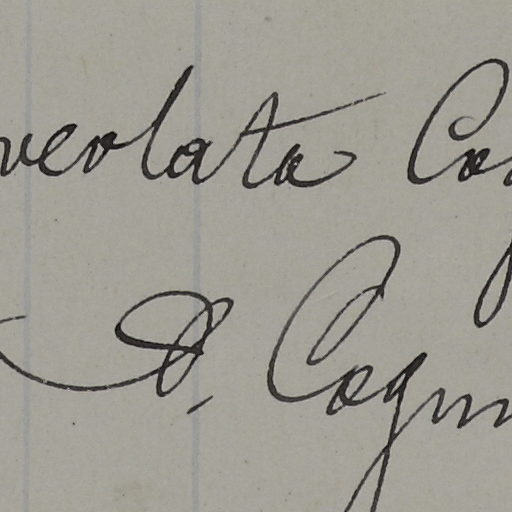 veolata Co
A. Cogn